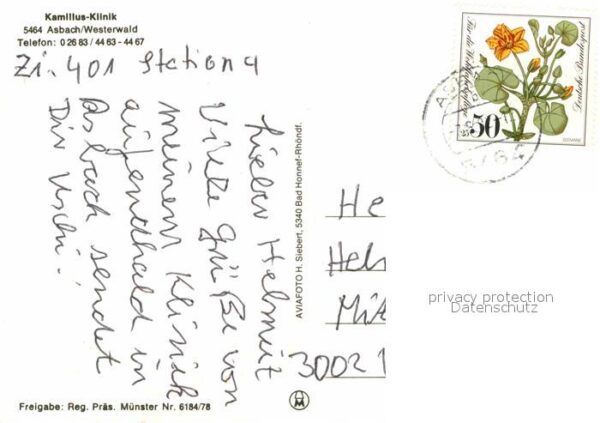 Kamillus-Klinik
5464 Asbach/Westerwald
Telefon: 0 26 83 / 44 63 - 44 67
Zi. 401 Station 4
Lieber Helmut
Viele Grüße von
meinem Klinik
aufenthald in
Asbach sendet
Dir Uschi!
AVIAFOTO H. Siebert, 5340 Bad Honnef-Rhöndf.
Freigabe: Reg. Präs. Münster Nr. 6184/78
Für die Wohlfahrtspflege
Deutsche Bundespost
50
+25
5464
He
Hel
Mit
3002 1
privacy protection
Datenschutz